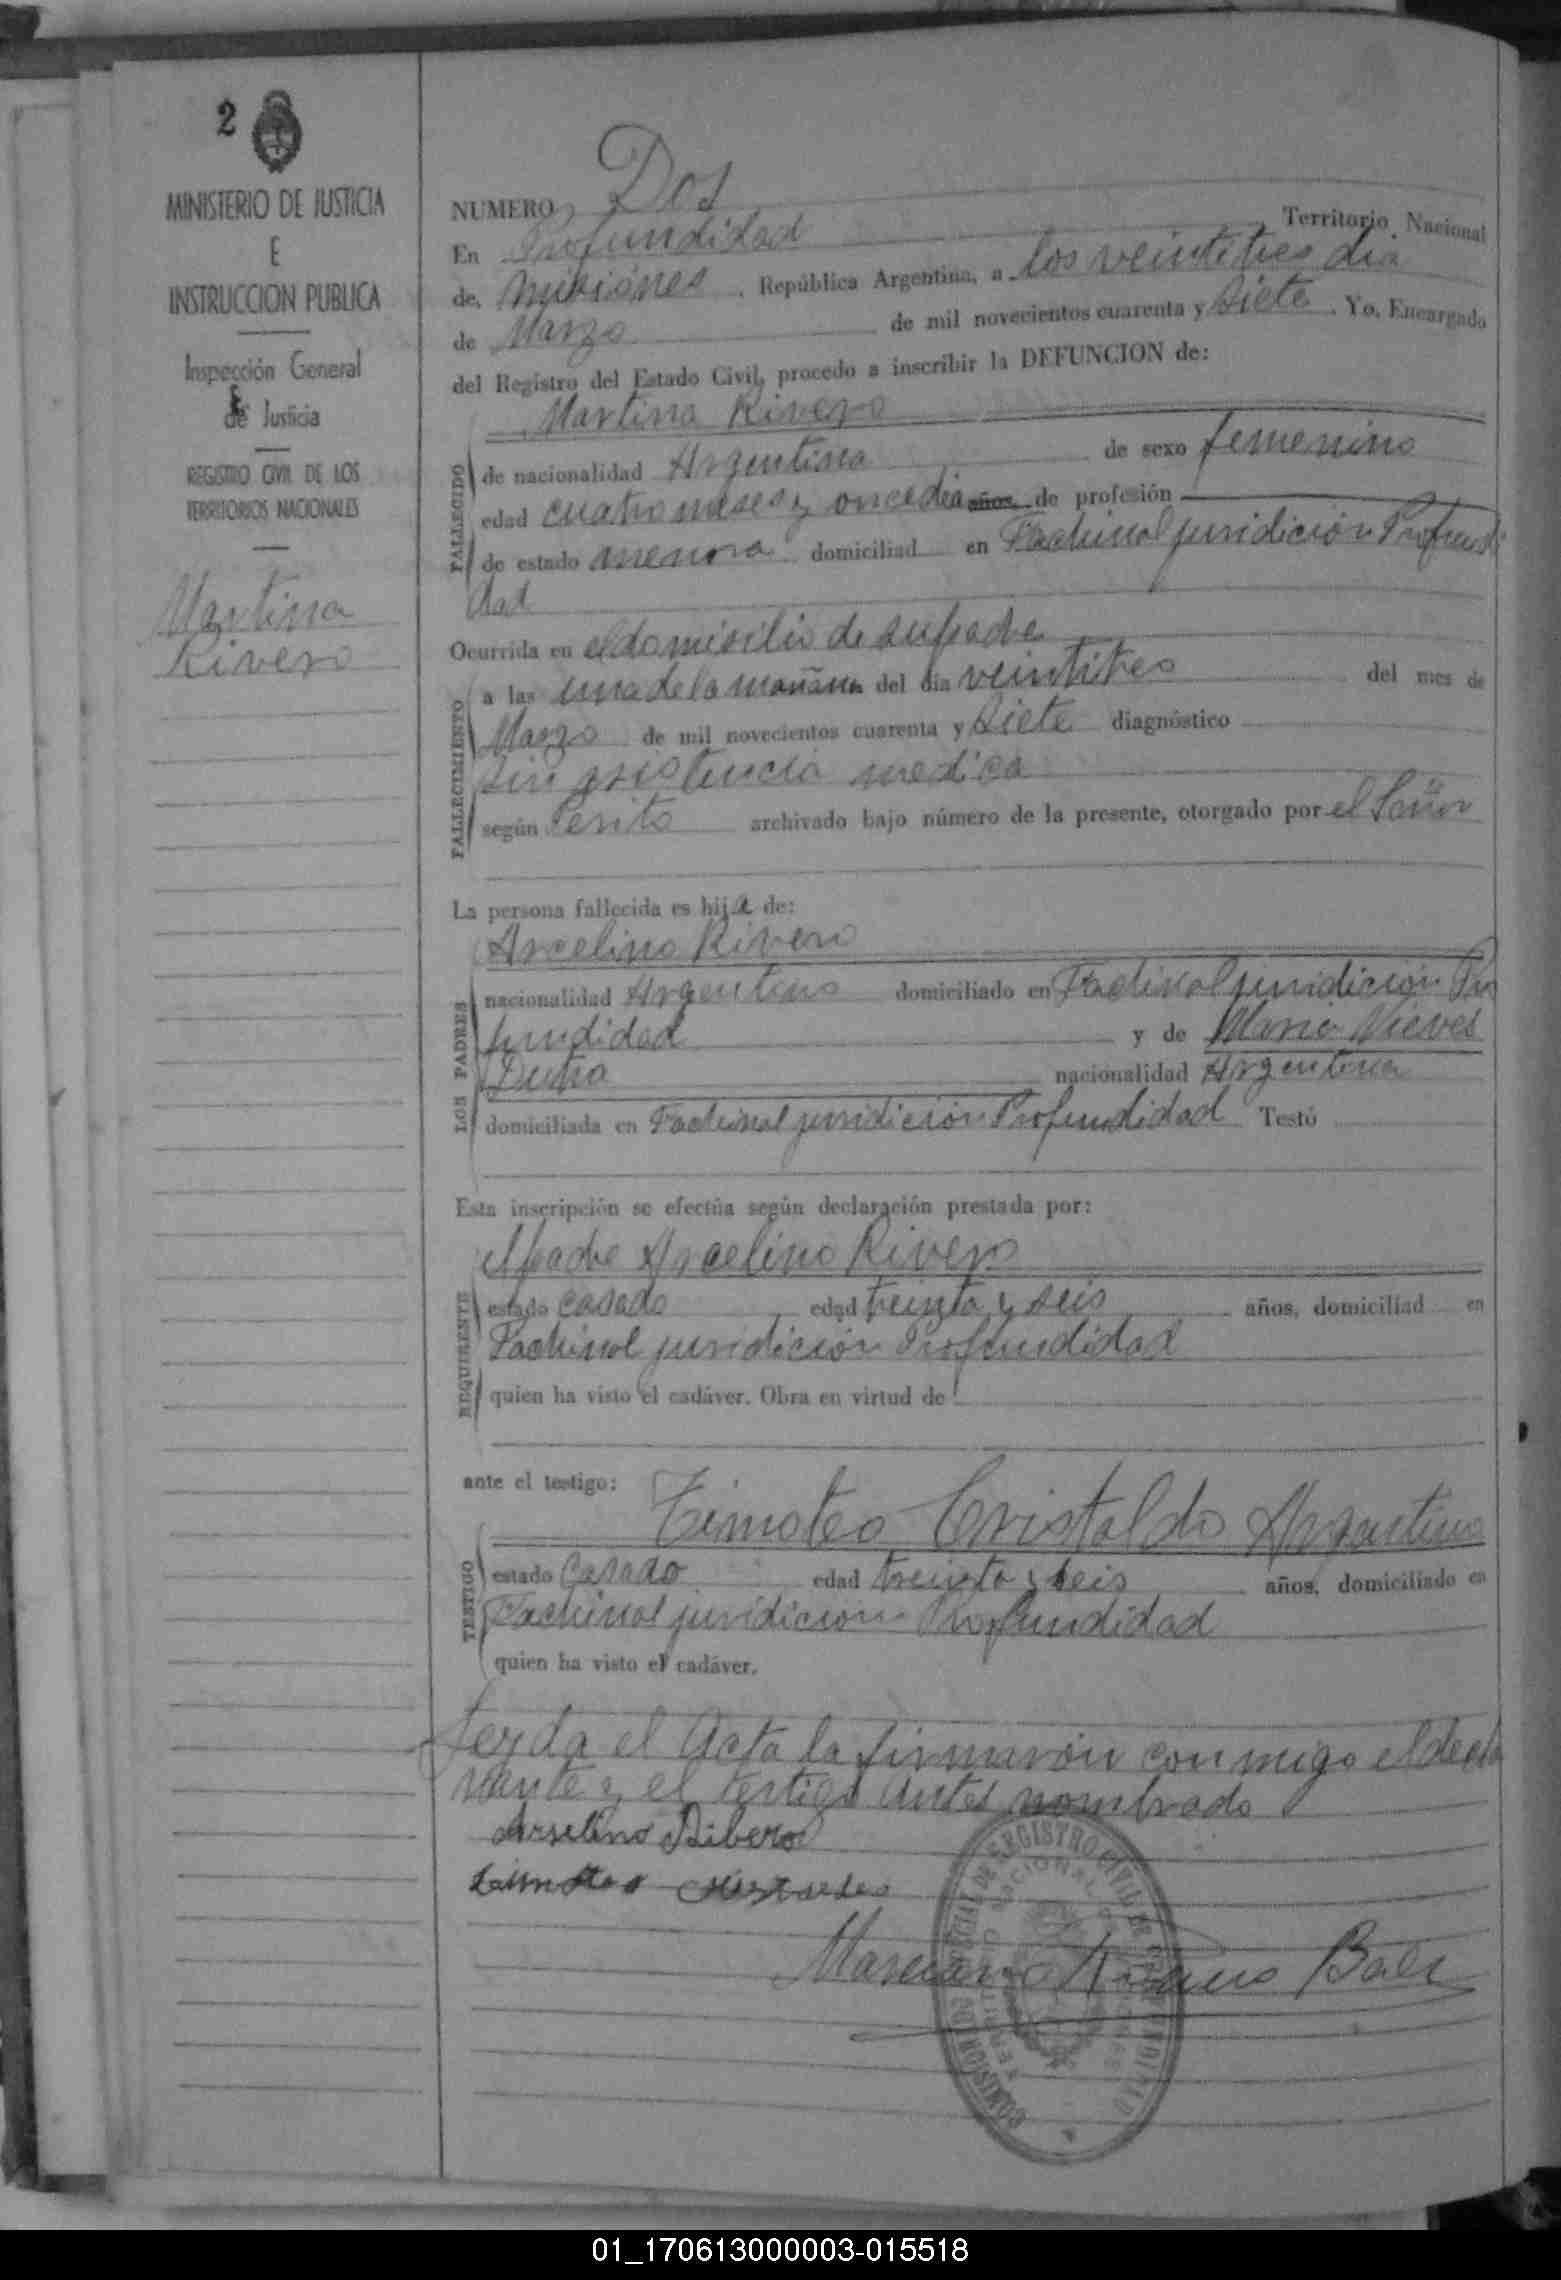 2
MINISTERIO DE JUSTICIA
E
INSTRUCCION PUBLICA
Inspección General
de Justicia
REGISTRO CIVIL DE LOS
TERRITORIOS NACIONALES
Martina
Rivero
NUMERO Dos
En Profundidad Territorio Nacional
de, Misiones , República Argentina, a los veintitres dia
de Marzo de mil novecientos cuarenta y Siete . Yo, Encargado
del Registro del Estado Civil, procedo a inscribir la DEFUNCION de:
FALLECIDO
Martina Rivero
de nacionalidad Argentina de sexo femenino
edad cuatro meses y once dia años, de profesión
de estado menora domiciliad en Fachinal juridición Profundi
dad
Ocurrida en el domisilio de su padre
FALLECIMIENTO
a las una de la mañana del día veintitres del mes de
Marzo de mil novecientos cuarenta y Siete diagnóstico
sin asistencia medica
según Perito archivado bajo número de la presente, otorgado por el Señor
La persona fallecida es hija de:
LOS PADRES
Arcelino Rivero
nacionalidad Argentino domiciliado en Fachinal juridición Pro
fundidad y de Maria Nieves
Dutra nacionalidad Argentina
domiciliada en Fachinal juridición Profundidad Testó
Esta inscripción se efectúa según declaración prestada por:
REQUIRENTE
el padre Arcelino Rivero
estado casado edad treinta y seis años, domiciliad en
Fachinal juridición Profundidad
quien ha visto el cadáver. Obra en virtud de
ante el testigo:
TESTIGO
Timoteo Cristaldo Argentino
estado Casado edad treinta y seis años, domiciliado en
Fachinal juridición Profundidad
quien ha visto el cadáver.
Leyda el Acta la firmaron conmigo el decla
rante y el testigo antes nombrado
Arselino Ribero
Timoteo
COMISION ESPECIAL DE REGISTRO CIVIL DE PROFUNDIDAD
TERRITORIO NACIONAL DE MISIONES
Baez
01_170613000003-015518